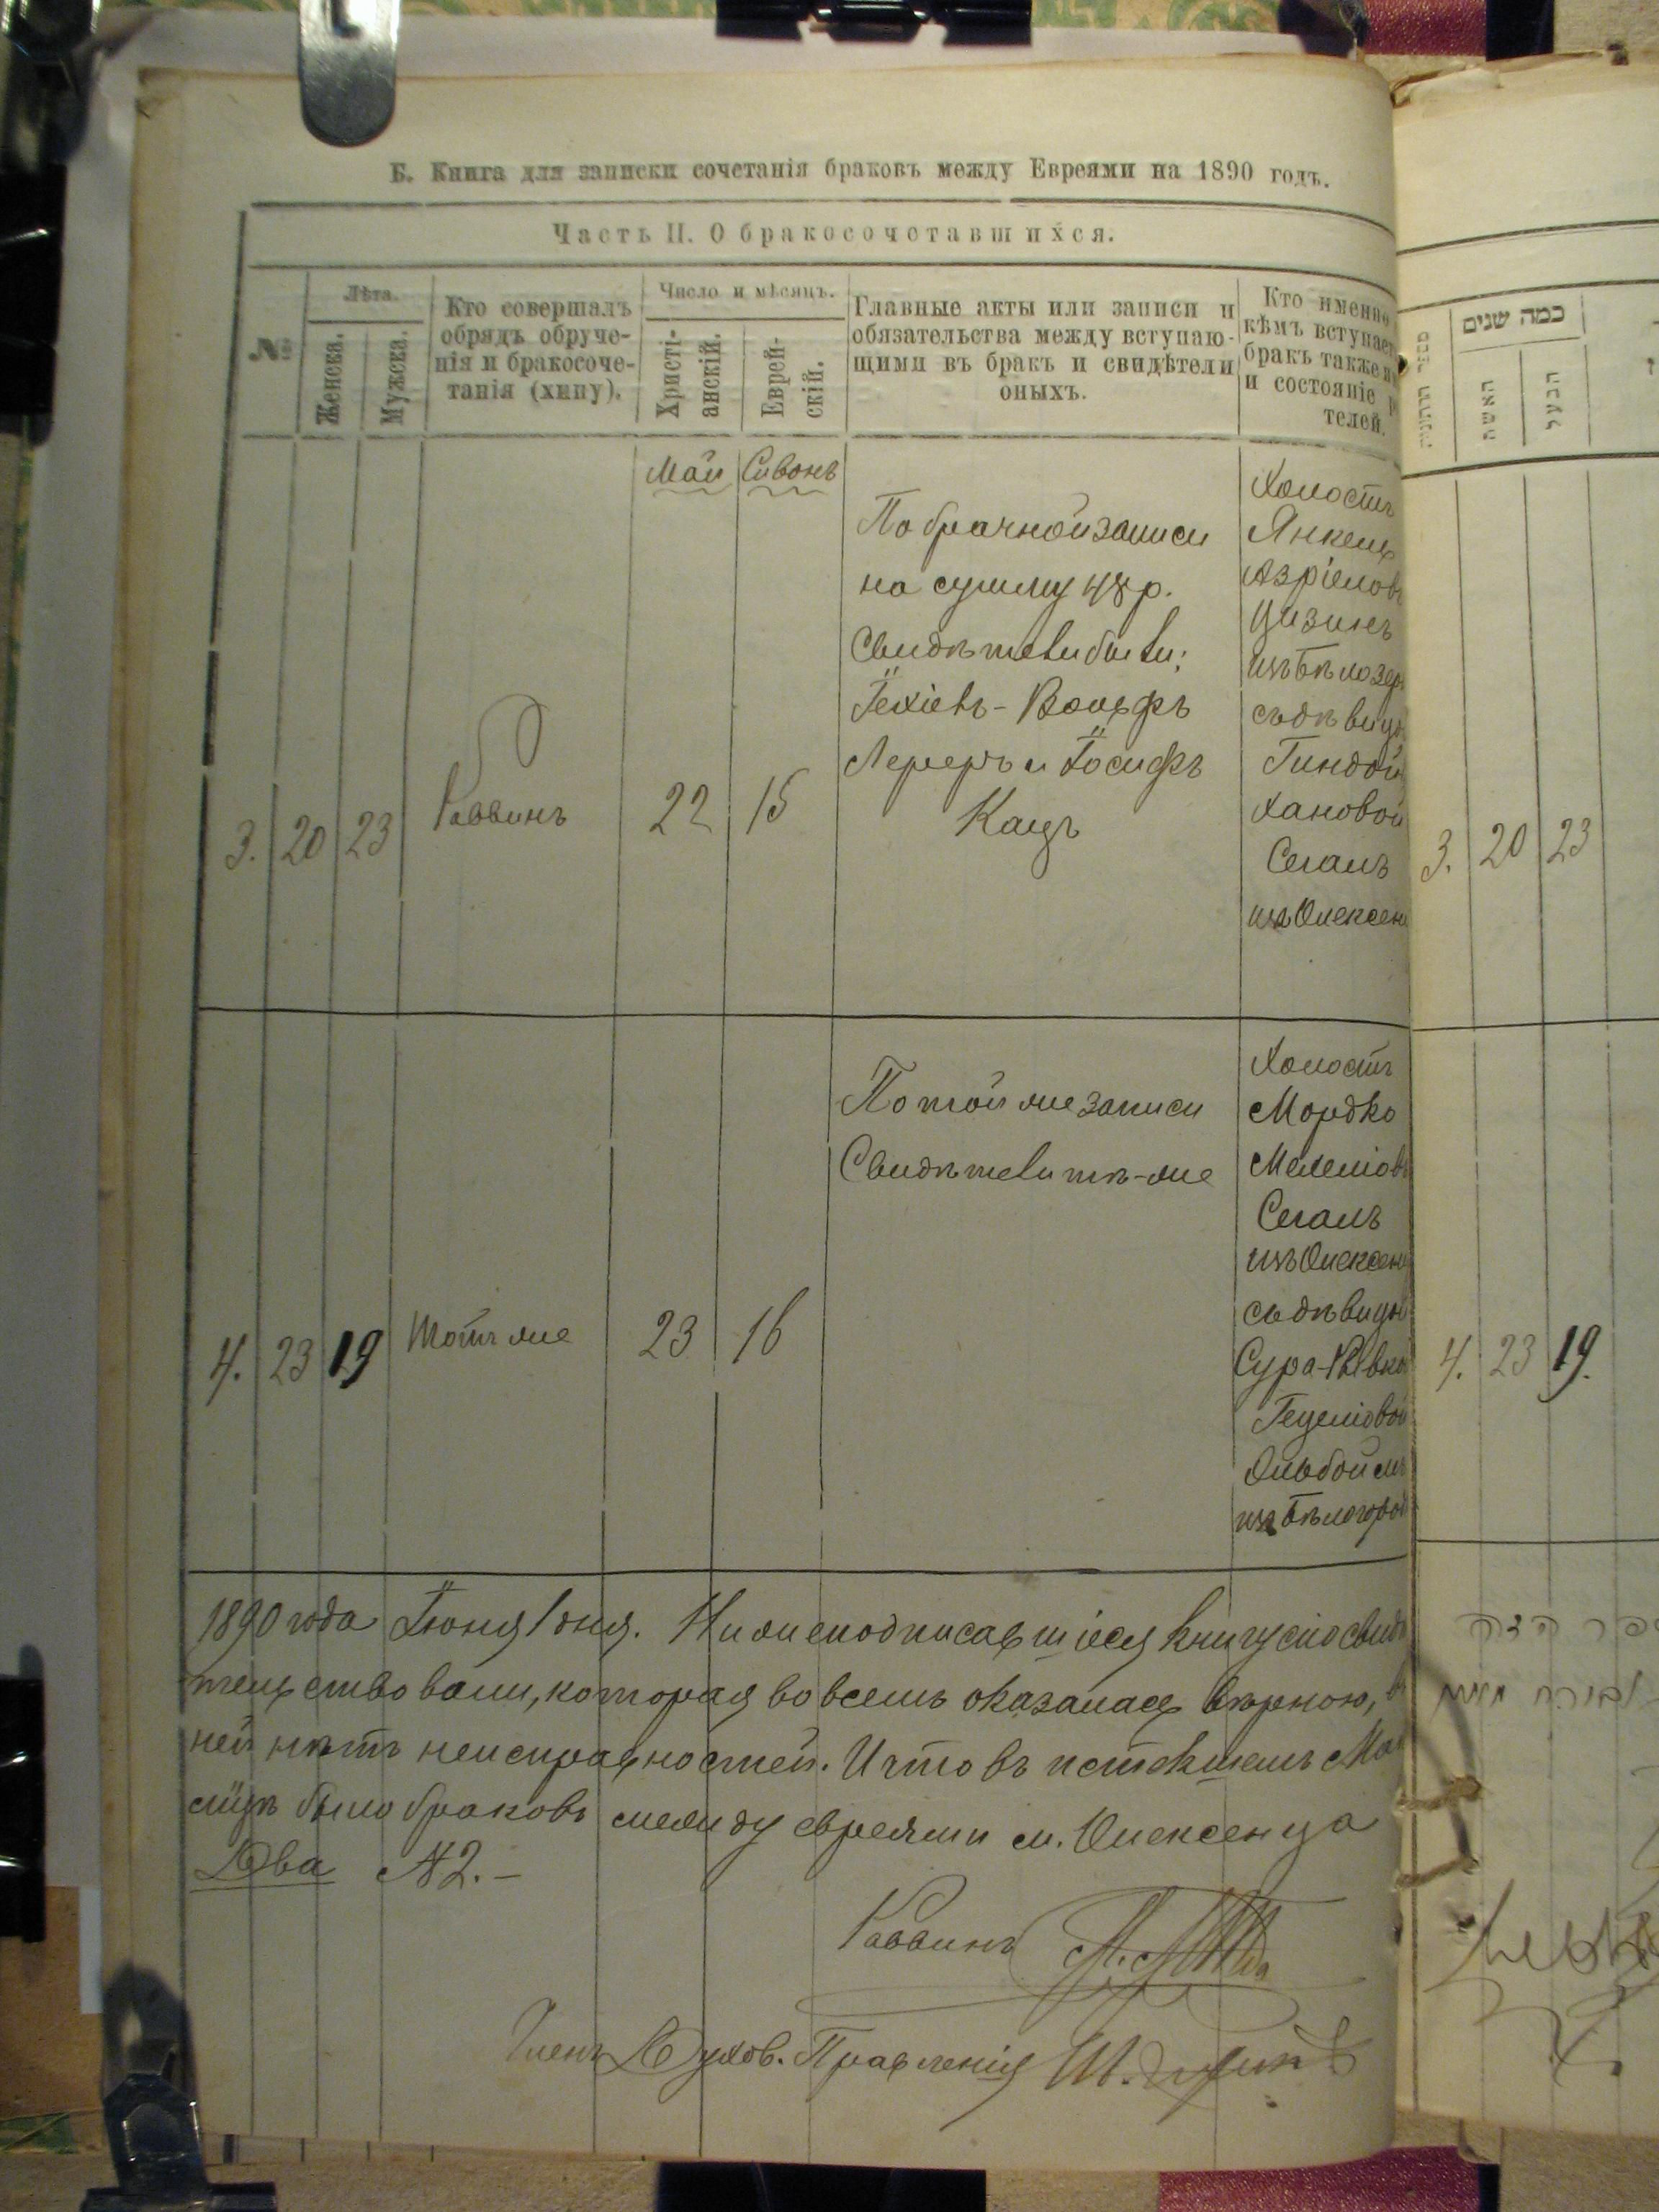 Б. Книга для записки сочетанія браковъ между Евреями на 1890 годъ.
Часть II. О бракосочетавшихся.
№
Лѣта.
Женска.
Мужска.
Кто совершалъ
обрядъ обруче-
нія и бракосоче-
танія (хипу).
Число и мѣсяцъ.
Христі-
анскій.
Еврей-
скій.
Главные акты или записи и
обязательства между вступаю-
щими въ бракъ и свидѣтели
оныхъ.
Кто именно
кѣмъ вступает
бракъ также
и состояніе р
телей.
Май
Сивонъ
3.
20
23
Раввинъ
22
15
По брачной записи
на сумму 48 р.
Свидѣтели были:
Іехіель-Вольфъ
Лереръ и Іосифъ
Кацъ
Холостъ
Янкель
Азріелов
Цизинъ
изъ Бѣлозер
съ дѣвицо
Гиндой
Хановой
Сегалъ
изъ Олексен
4.
23
19
Тотъ же
23
16
По той же записи
Свидѣтели тѣ-же
Холостъ
Мордко
Мелешов
Сегалъ
изъ Олексен
съ дѣвицо
Сура-Ривко
Гецеліовой
Ольбойм
изъ Бѣлогород
1890 года Іюня 1 дня. Нижеподписавшіеся книгу сію свидѣ
тельствовали, которая во всемъ оказалась вѣрною, в
ней нѣтъ неисправностей. И что въ истекшемъ Мая
сяцѣ было браковъ между евреями м. Олексенца
Два № 2.-
Раввинъ
Членъ Духов. Правленія Ш.
כמה שנים
האשה
הבעל
3.
20
23
4.
23
19.